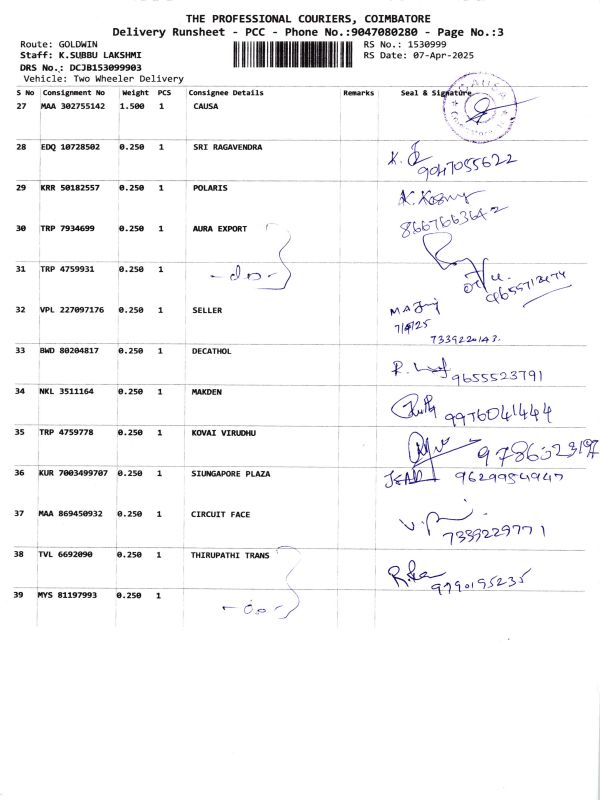 THE PROFESSIONAL COURIERS, COIMBATORE
Delivery Runsheet - PCC - Phone No.:9047080280 - Page No.:3
Route: GOLDWIN
Staff: K.SUBBU LAKSHMI
DRS No.: DCJB153099903
Vehicle: Two Wheeler Delivery
RS No.: 1530999
RS Date: 07-Apr-2025
S No Consignment No Weight PCS Consignee Details Remarks Seal & Signature
27 MAA 302755142 1.500 1 CAUSA
CAUSA
28 EDQ 10728502 0.250 1 SRI RAGAVENDRA
9047055622
29 KRR 50182557 0.250 1 POLARIS
8667663642
30 TRP 7934699 0.250 1 AURA EXPORT
31 TRP 4759931 0.250 1 -do-
32 VPL 227097176 0.250 1 SELLER
7/4/25
7339220143.
33 BWD 80204817 0.250 1 DECATHOL
9655523791
34 NKL 3511164 0.250 1 MAKDEN
9976041444
35 TRP 4759778 0.250 1 KOVAI VIRUDHU
36 KUR 7003499707 0.250 1 SIUNGAPORE PLAZA
9629954947
37 MAA 869450932 0.250 1 CIRCUIT FACE
7339229771
38 TVL 6692090 0.250 1 THIRUPATHI TRANS
9790195235
39 MYS 81197993 0.250 1 -do-